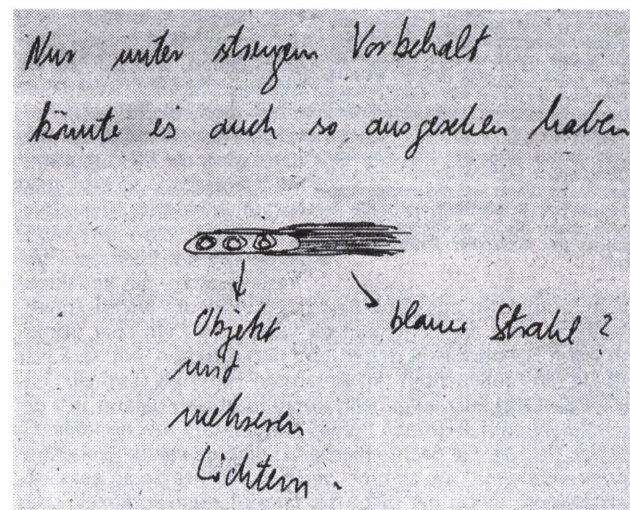 Nur unter strengem Vorbehalt
könnte es auch so ausgesehen haben
Objekt
mit
mehreren
Lichtern.
blauer Strahl?